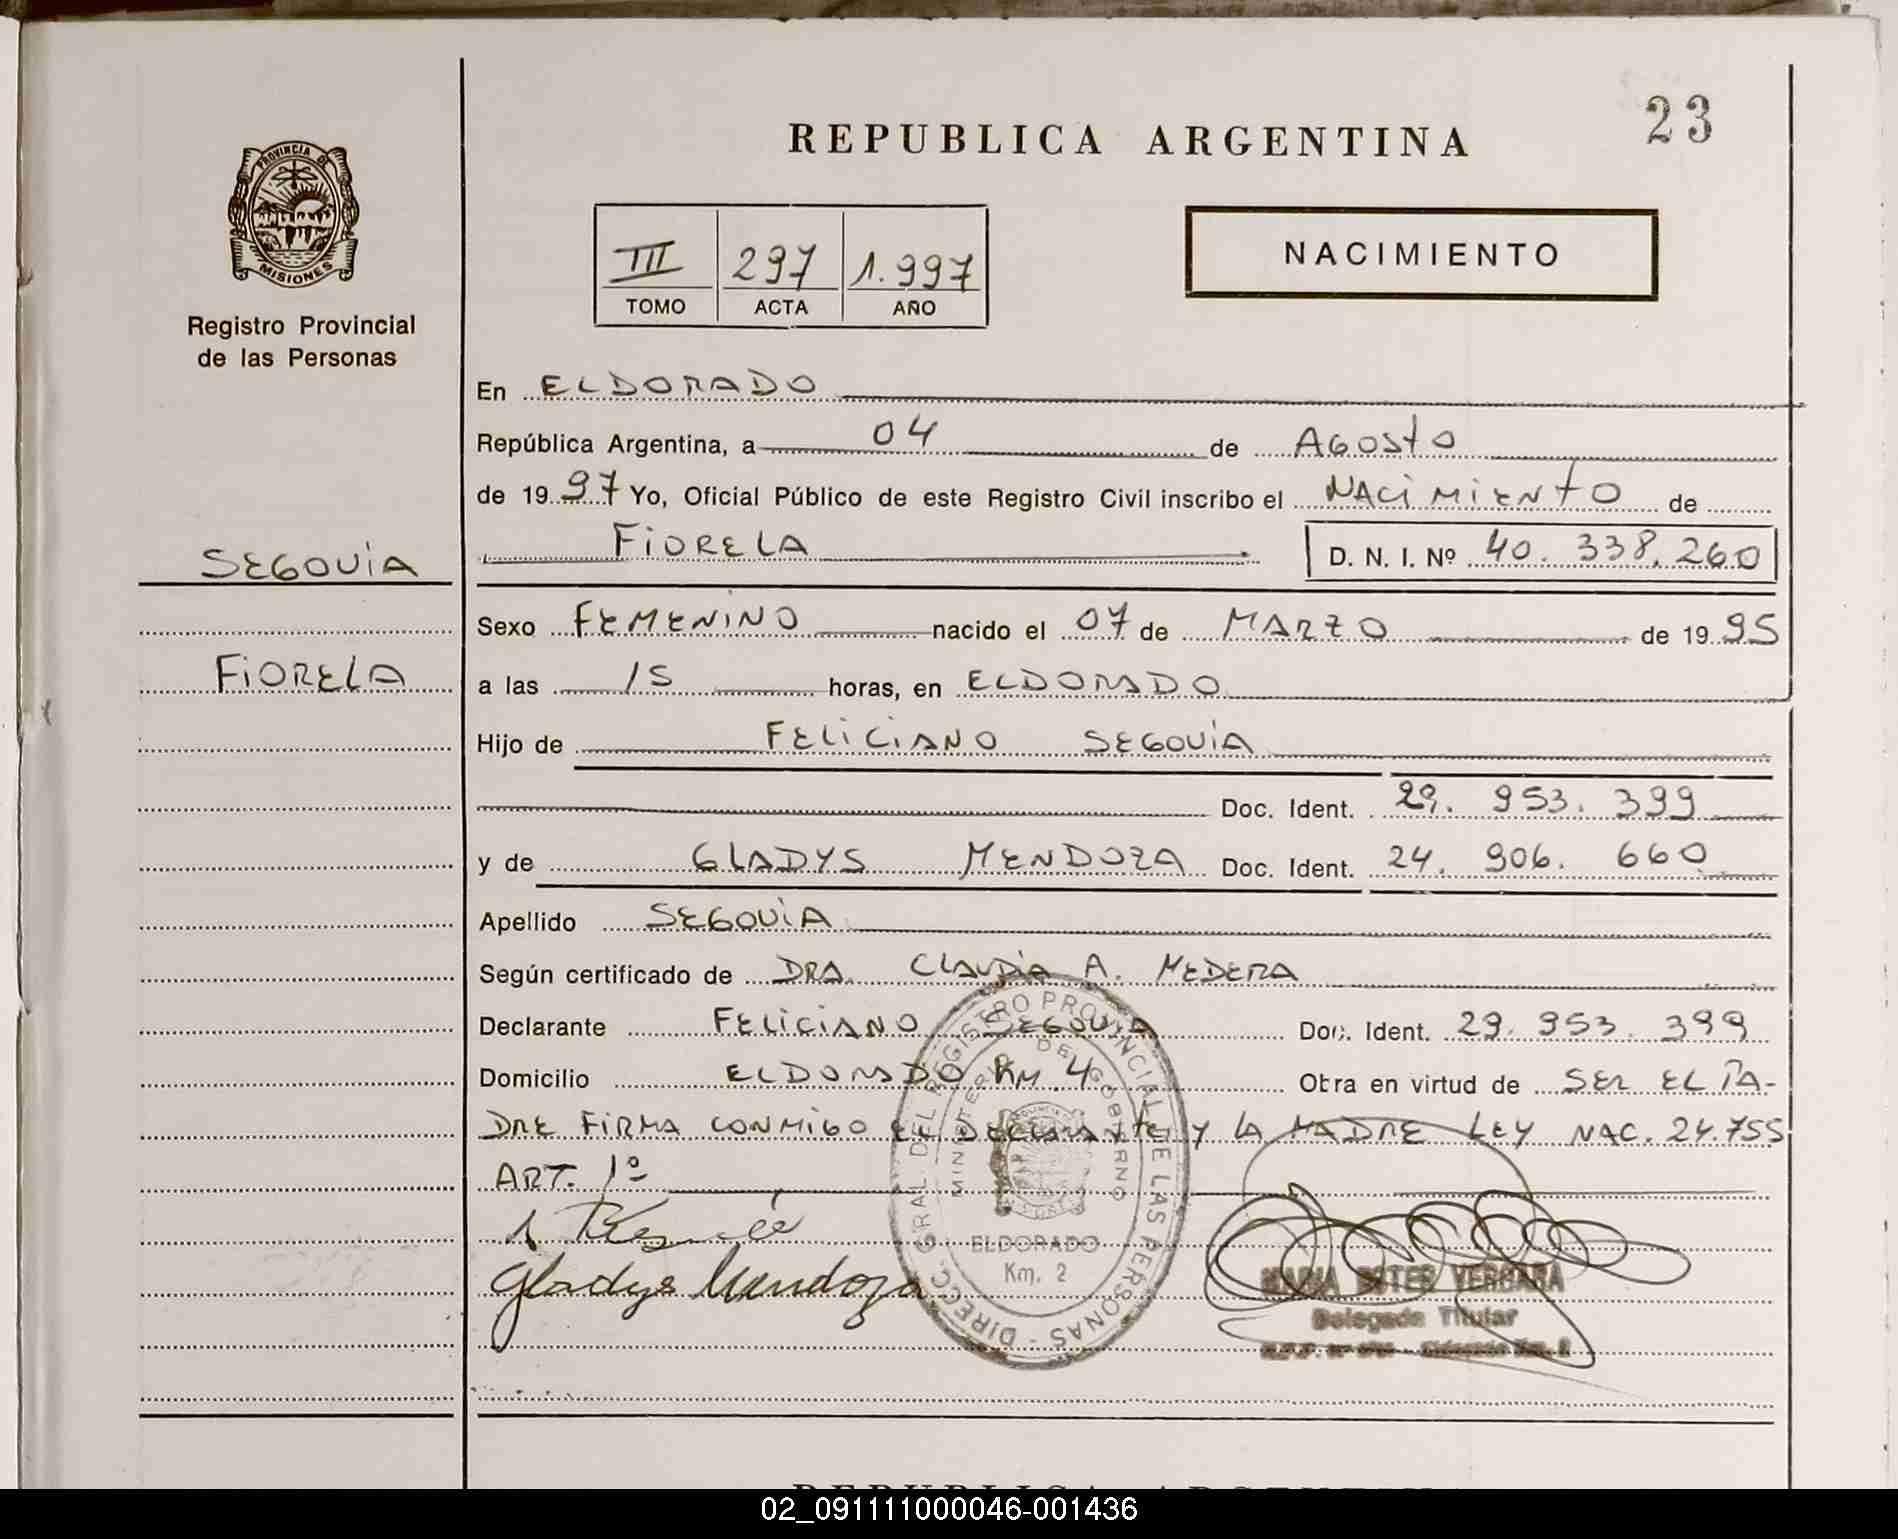 23
REPUBLICA ARGENTINA
PROVINCIA DE
MISIONES
Registro Provincial
de las Personas
NACIMIENTO
III 297 1.997
TOMO ACTA AÑO
En ELDORADO
República Argentina, a 04 de AGOSTO
de 1997 Yo, Oficial Público de este Registro Civil inscribo el NACIMIENTO de
FIORELA D. N. I. Nº 40.338.260
SEGOVIA
Sexo FEMENINO nacido el 07 de MARZO de 1995
FIORELA
a las 15 horas, en ELDORADO
Hijo de FELICIANO SEGOVIA
Doc. Ident. 29.953.399
y de GLADYS MENDOZA Doc. Ident. 24.906.660
Apellido SEGOVIA
Según certificado de DRA. CLAUDIA A. MEDERA
Declarante FELICIANO SEGOVIA Doc. Ident. 29.953.399
Domicilio ELDORADO KM 4 Obra en virtud de SER EL PA-
DRE FIRMA CONMIGO EL DECLARANTE Y LA MADRE LEY NAC. 24.755
ART. 1º
Gladys Mendoza
DIRECC. GRAL DEL REGISTRO PROVINCIAL DE LAS PERSONAS
MINISTERIO DE GOBIERNO
ELDORADO
Km. 2
MARIA ESTER VERGARA
Delegada Titular
REPUBLICA ARGENTINA
02_091111000046-001436